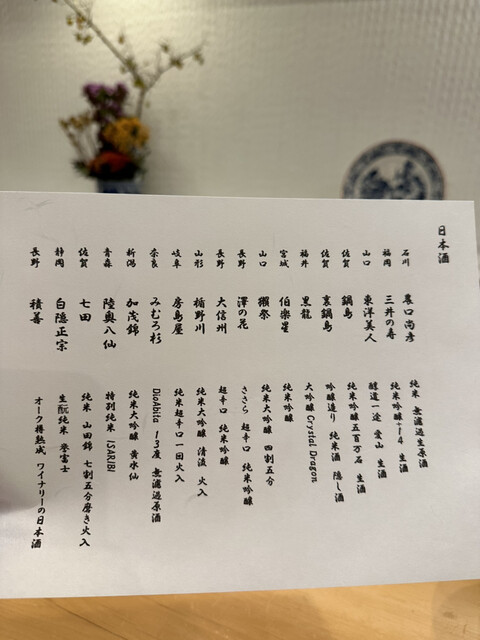 日本酒
石川 農口尚彦 純米 無濾過生原酒
福岡 三井の寿 純米吟醸+14 生酒
山口 東洋美人 醇道一途 愛山 生酒
佐賀 鍋島 純米吟醸五百万石 生酒
佐賀 裏鍋島 吟醸造り 純米酒 隠し酒
福井 黒龍 大吟醸 Crystal Dragon
宮城 伯楽星 純米吟醸
山口 獺祭 純米大吟醸 四割五分
長野 澤の花 ささら 超辛口 純米吟醸
長野 大信州 超辛口 純米吟醸
山形 楯野川 純米大吟醸 清流 火入
岐阜 房島屋 純米超辛口一回火入
奈良 みむろ杉 DioAbita 13度 無濾過原酒
新潟 加茂錦 純米大吟醸 黄水仙
青森 陸奥八仙 特別純米 ISARIBI
佐賀 七田 純米 山田錦 七割五分磨き火入
静岡 白隠正宗 生酛純米 誉富士
長野 積善 オーク樽熟成 ワイナリーの日本酒